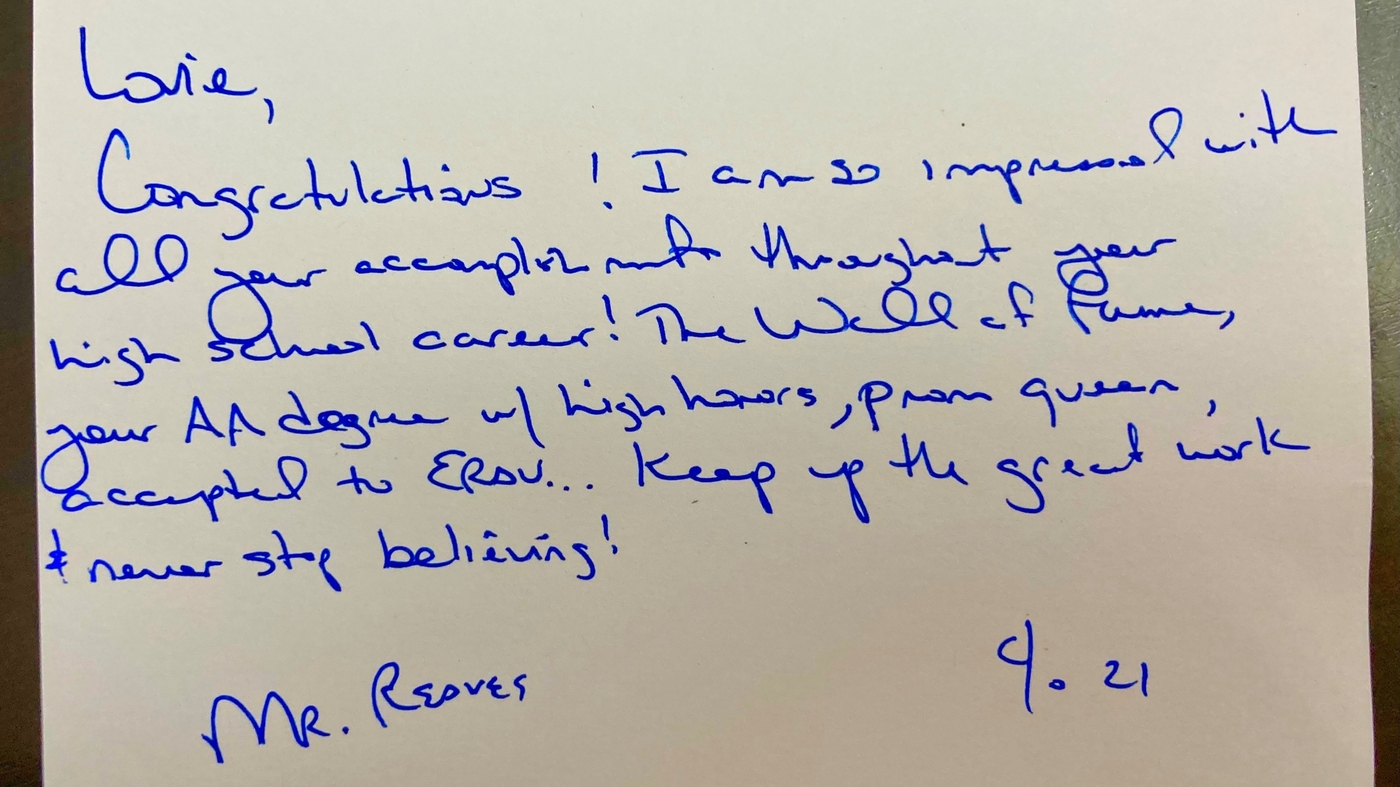 Lorie,
Congratulations! I am so impressed with
all your accomplishments throughout your
high school career! The Wall of Fame,
your AA degree w/ high honors, prom queen,
accepted to ERAU... Keep up the great work
& never stop believing!
Mr. Reaves
c/o 21